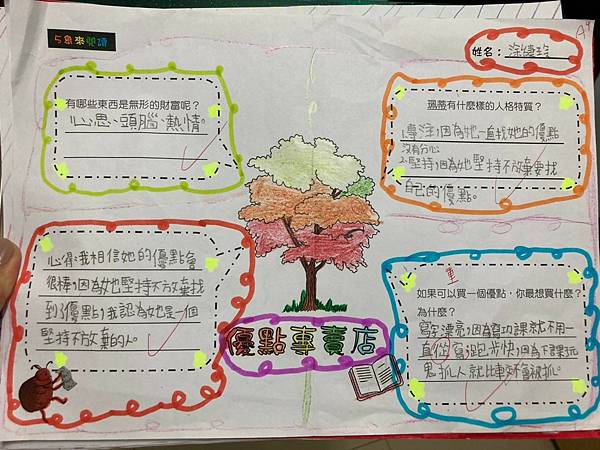 5魚來閱讀
姓名：涂婕玲
A4
有哪些東西是無形的財富呢？
心思、頭腦、熱情。
溫蒂有什麼樣的人格特質？
1.專注，因為她一直找她的優點
沒有分心
2.堅持，因為她堅持不放棄要找
自己的優點。
心得：我相信她的優點會
很棒，因為她堅持不放棄找
到優點，我認為她是一個
堅持不放棄的人。
優點專賣店
重
如果可以買一個優點，你最想買什麼？
為什麼？
寫字漂亮，因為寫功課就不用一
直擦寫，跑步快，因為下課玩
鬼抓人就比較不會被抓。